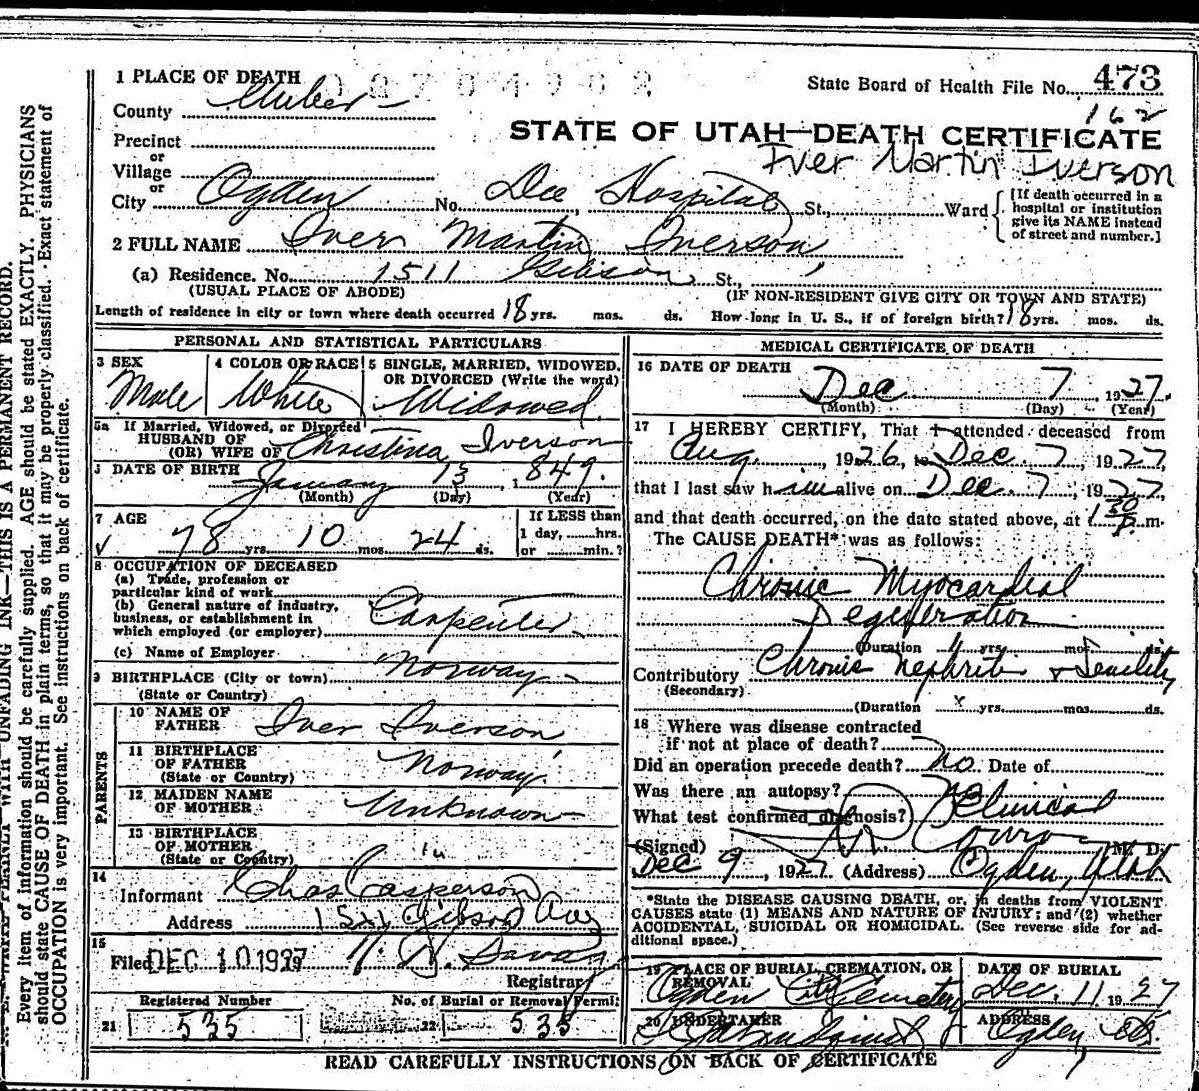 1 PLACE OF DEATH
State Board of Health File No. 473
County Weber
162
STATE OF UTAH—DEATH CERTIFICATE
Precinct
Iver Martin Iverson
or
Village
or
City Ogden No. Dee Hospital St., Ward
[If death occurred in a
hospital or institution
give its NAME instead
of street and number.]
2 FULL NAME Iver Martin Iverson
(a) Residence. No. 1511 Gibson St.,
(USUAL PLACE OF ABODE) (IF NON-RESIDENT GIVE CITY OR TOWN AND STATE)
Length of residence in city or town where death occurred 18 yrs. mos. ds. How long in U. S., if of foreign birth? 18 yrs. mos. ds.
PERSONAL AND STATISTICAL PARTICULARS
3 SEX
Male
4 COLOR OR RACE
White
5 SINGLE, MARRIED, WIDOWED,
OR DIVORCED (Write the word)
Widowed
5a If Married, Widowed, or Divorced
HUSBAND OF
(OR) WIFE OF Christina Iverson
DATE OF BIRTH
January 13, 1849.
(Month) (Day) (Year)
7 AGE
78 yrs. 10 mos. 24 ds.
If LESS than
1 day, hrs.
or min.?
8 OCCUPATION OF DECEASED
(a) Trade, profession or
particular kind of work
(b) General nature of industry,
business, or establishment in
which employed (or employer) Carpenter
(c) Name of Employer
9 BIRTHPLACE (City or town) Norway
(State or Country)
PARENTS
10 NAME OF
FATHER Iver Iverson
11 BIRTHPLACE
OF FATHER
(State or Country) Norway
12 MAIDEN NAME
OF MOTHER Unknown
13 BIRTHPLACE
OF MOTHER
(State or Country) "
14
Informant Chas Casperson
Address 1521 Gibson Ave
15
Filed DEC 10 1927
Registrar
Registered Number
21 535
No. of Burial or Removal Permit
22 535
MEDICAL CERTIFICATE OF DEATH
16 DATE OF DEATH
Dec 7 1927
(Month) (Day) (Year)
17 I HEREBY CERTIFY, That I attended deceased from
Aug, 1926, to Dec. 7, 1927,
that I last saw him alive on Dec. 7, 1927,
and that death occurred, on the date stated above, at 1 30 P. m.
The CAUSE DEATH* was as follows:
Chronic Myocardial
Degeneration
(Duration yrs. mos. ds.
Contributory Chronic Nephritis + Senility
(Secondary)
(Duration x yrs. mos. ds.
18 Where was disease contracted
if not at place of death?
Did an operation precede death? No Date of
Was there an autopsy? no
What test confirmed diagnosis? Clinical
(Signed) M. D.
Dec 9, 1927 (Address) Ogden, Utah
*State the DISEASE CAUSING DEATH, or, in deaths from VIOLENT
CAUSES state (1) MEANS AND NATURE OF INJURY; and (2) whether
ACCIDENTAL, SUICIDAL OR HOMICIDAL. (See reverse side for ad-
ditional space.)
19 PLACE OF BURIAL, CREMATION, OR
REMOVAL
Ogden City Cemetery
DATE OF BURIAL
Dec. 11 1927
20 UNDERTAKER
ADDRESS
Ogden,
READ CAREFULLY INSTRUCTIONS ON BACK OF CERTIFICATE
Every item of information should be carefully supplied. AGE should be stated EXACTLY. PHYSICIANS
should state CAUSE OF DEATH in plain terms, so that it may be properly classified. Exact statement of
OCCUPATION is very important. See instructions on back of certificate.
WITH UNFADING INK—THIS IS A PERMANENT RECORD.